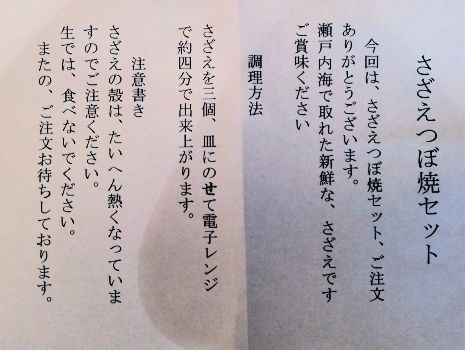 さざえつぼ焼セット
今回は、さざえつぼ焼セット、ご注文
ありがとうございます。
瀬戸内海で取れた新鮮な、さざえです
ご賞味ください
調理方法
さざえを三個、皿にのせて電子レンジ
で約四分で出来上がります。
注意書き
さざえの殻は、たいへん熱くなっていま
すのでご注意ください。
生では、食べないでください。
またの、ご注文お待ちしております。